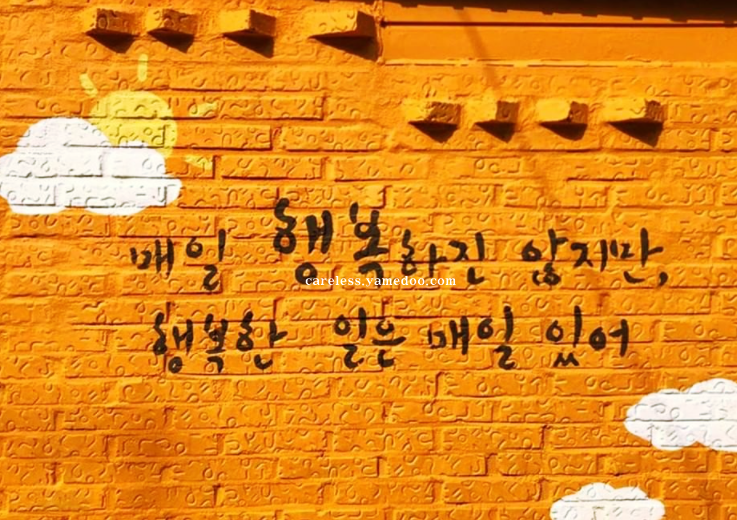 매일 행복하진 않지만,
careless.yamedoo.com
행복한 일은 매일 있어